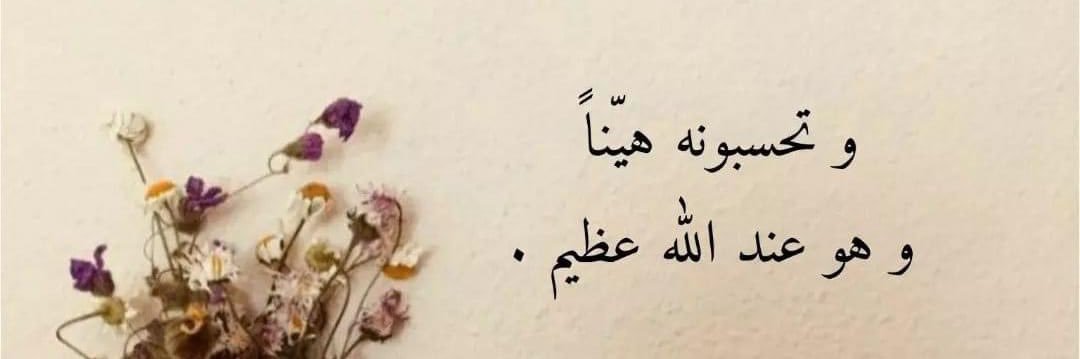 و تحسبونه هيّناً
و هو عند الله عظيم .